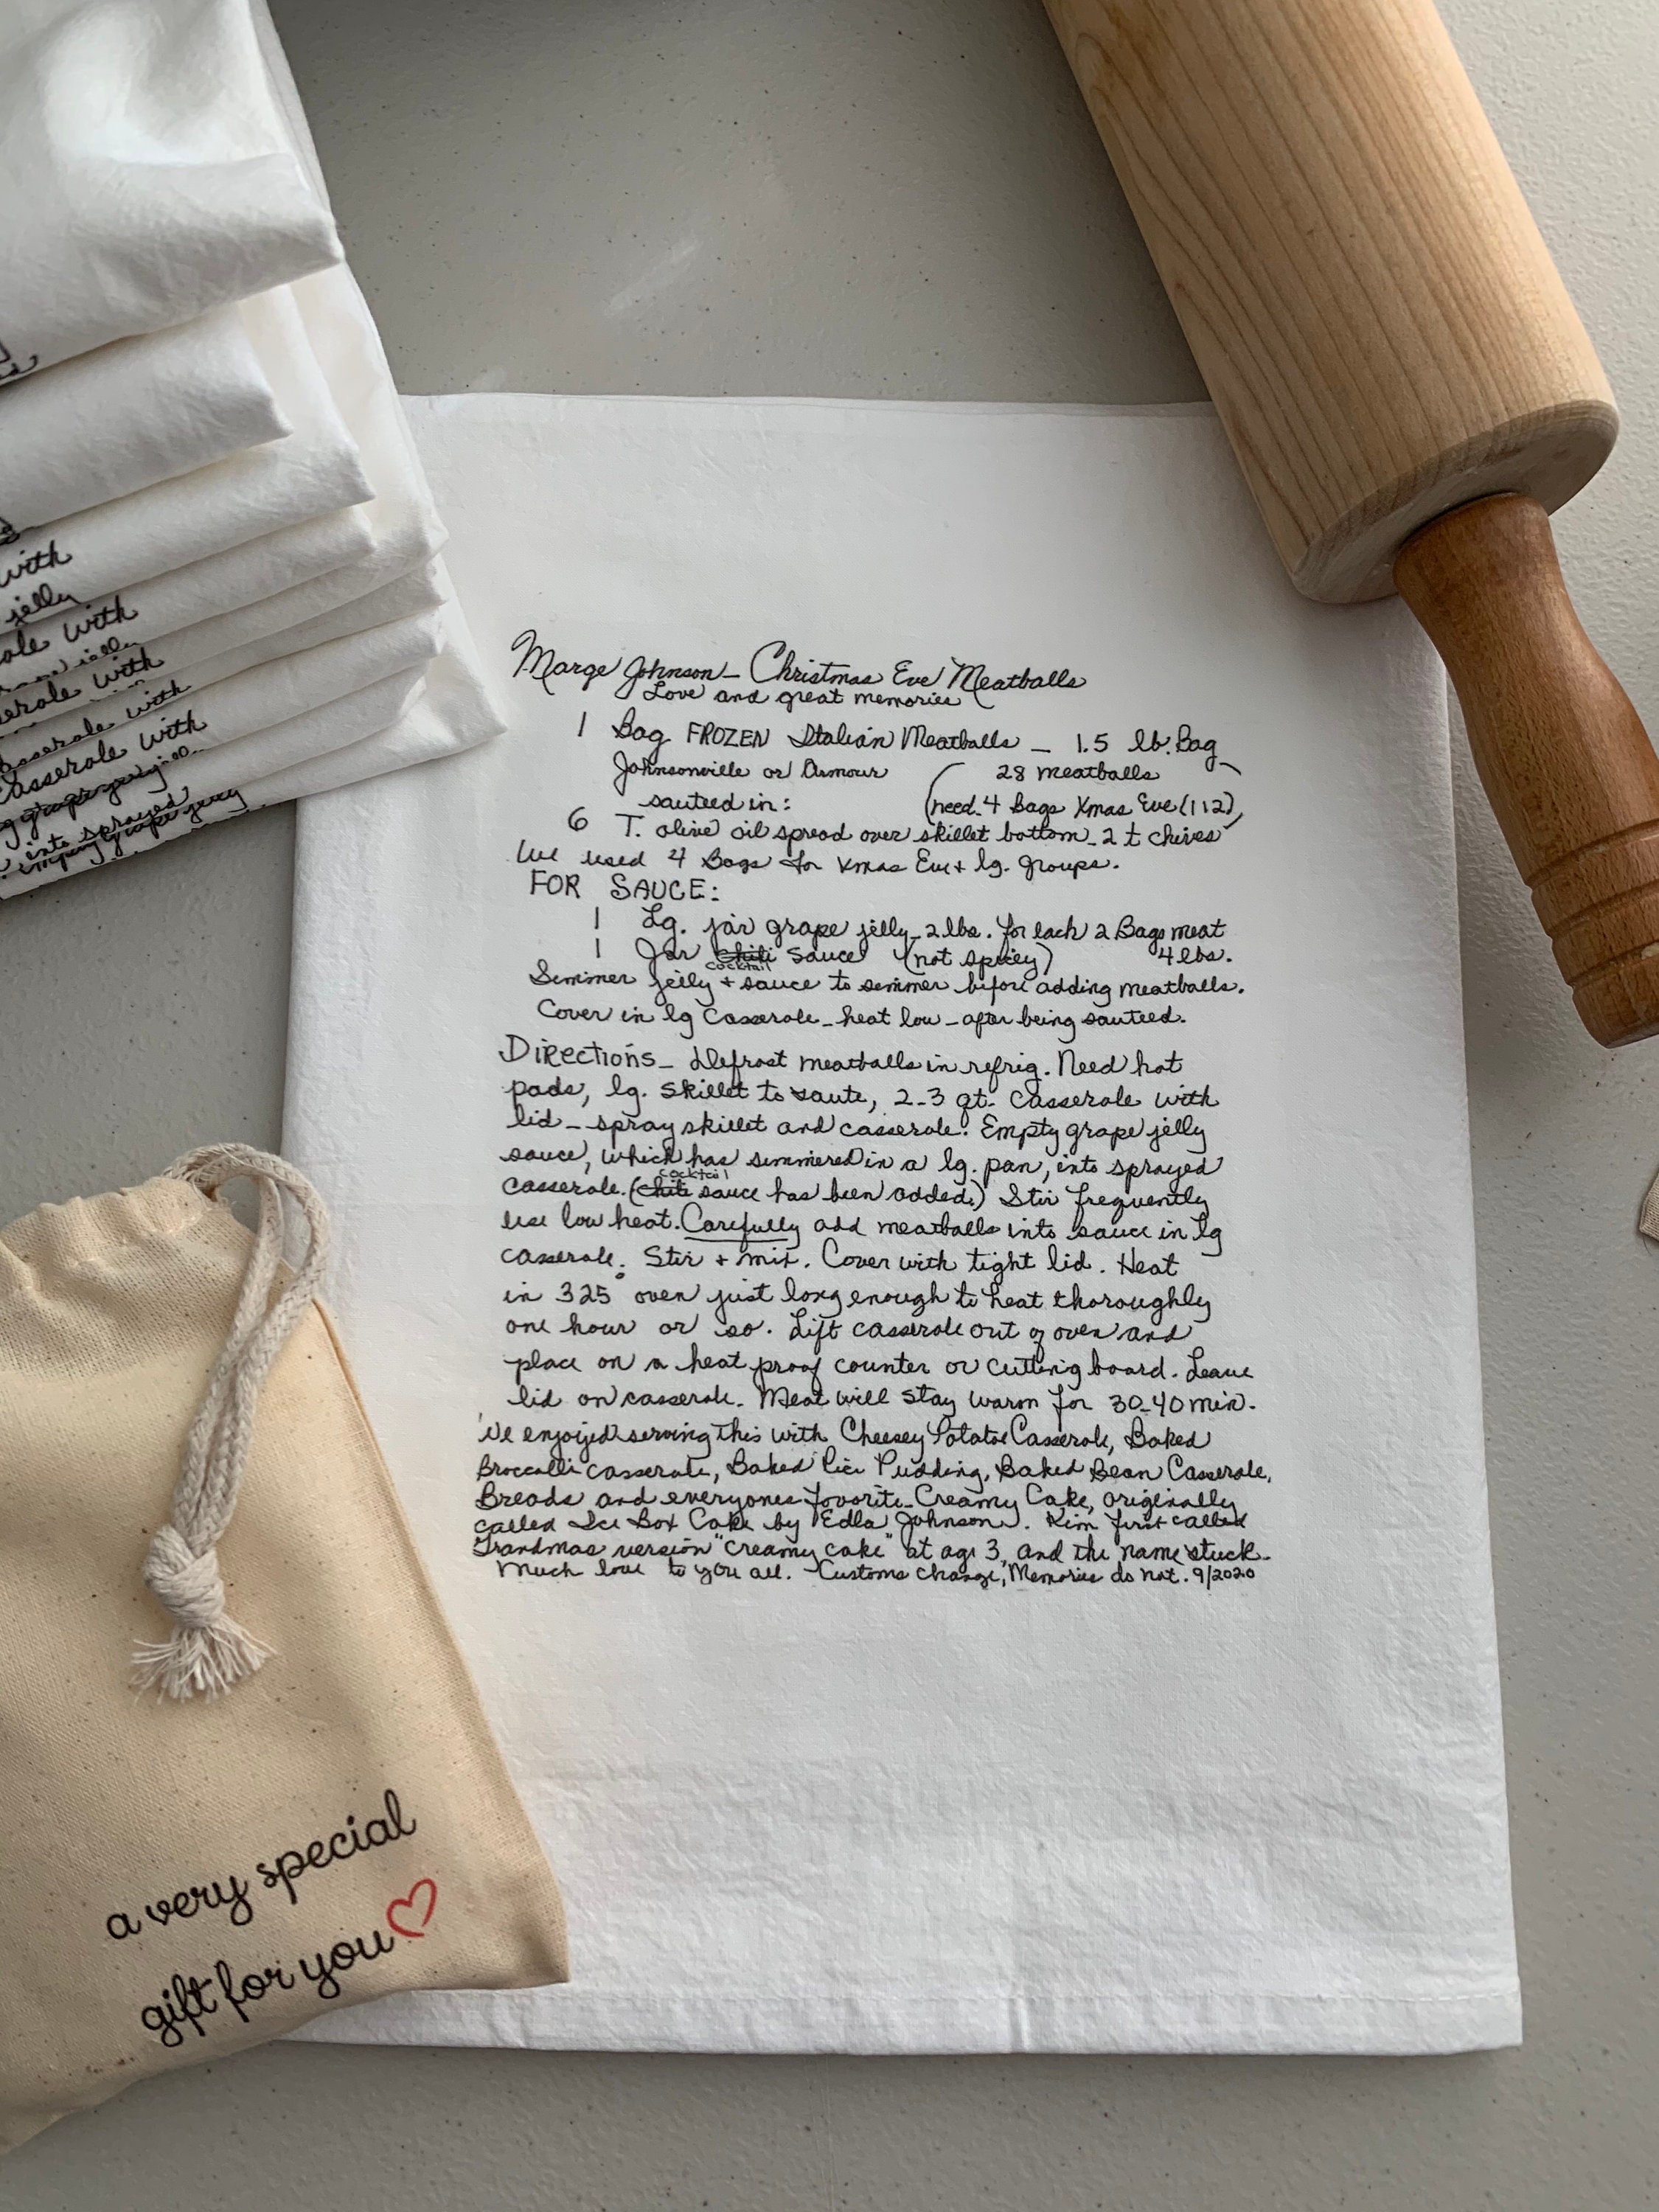 Marge Johnson – Christmas Eve Meatballs
Love and great memories
1 Bag FROZEN Italian Meatballs – 1.5 lb. Bag
Johnsonville or Armour ( 28 meatballs
sauteed in: (need 4 Bags Xmas Eve (112)
6 T. olive oil spread over skillet bottom – 2 t chives
We used 4 Bags for Xmas Eve + lg. groups.
FOR SAUCE:
1 Lg. jar grape jelly – 2 lbs. for each 2 Bags meat
1 Jar chili cocktail sauce (not spicey) 4 lbs.
Simmer jelly + sauce to simmer before adding meatballs.
Cover in lg casserole – heat low – after being sauteed.
Directions – Defrost meatballs in refrig. Need hot
pads, lg. skillet to saute, 2-3 qt. casserole with
lid – spray skillet and casserole. Empty grape jelly
sauce, which has simmered in a lg. pan, into sprayed
casserole. (chili cocktail sauce has been added.) Stir frequently
use low heat. Carefully add meatballs into sauce in lg
casserole. Stir + mix. Cover with tight lid. Heat
in 325° oven just long enough to heat thoroughly
one hour or so. Lift casserole out of oven and
place on a heat proof counter or cutting board. Leave
lid on casserole. Meat will stay warm for 30-40 min.
We enjoyed serving this with Cheesey Potatoe Casserole, Baked
Broccolli casserole, Baked Rice Pudding, Baked Bean Casserole,
Breads and everyones favorite – Creamy Cake, originally
called Ice Box Cake by Edla Johnson. Kim first called
Grandmas version "creamy cake" at age 3, and the name stuck.
Much love to you all. – Customs change, Memories do not. 9/2020
with
jelly
ole with
jelly
serole with
asserole with
casserole with
grape jelly
into sprayed
grape jelly
a very special
gift for you